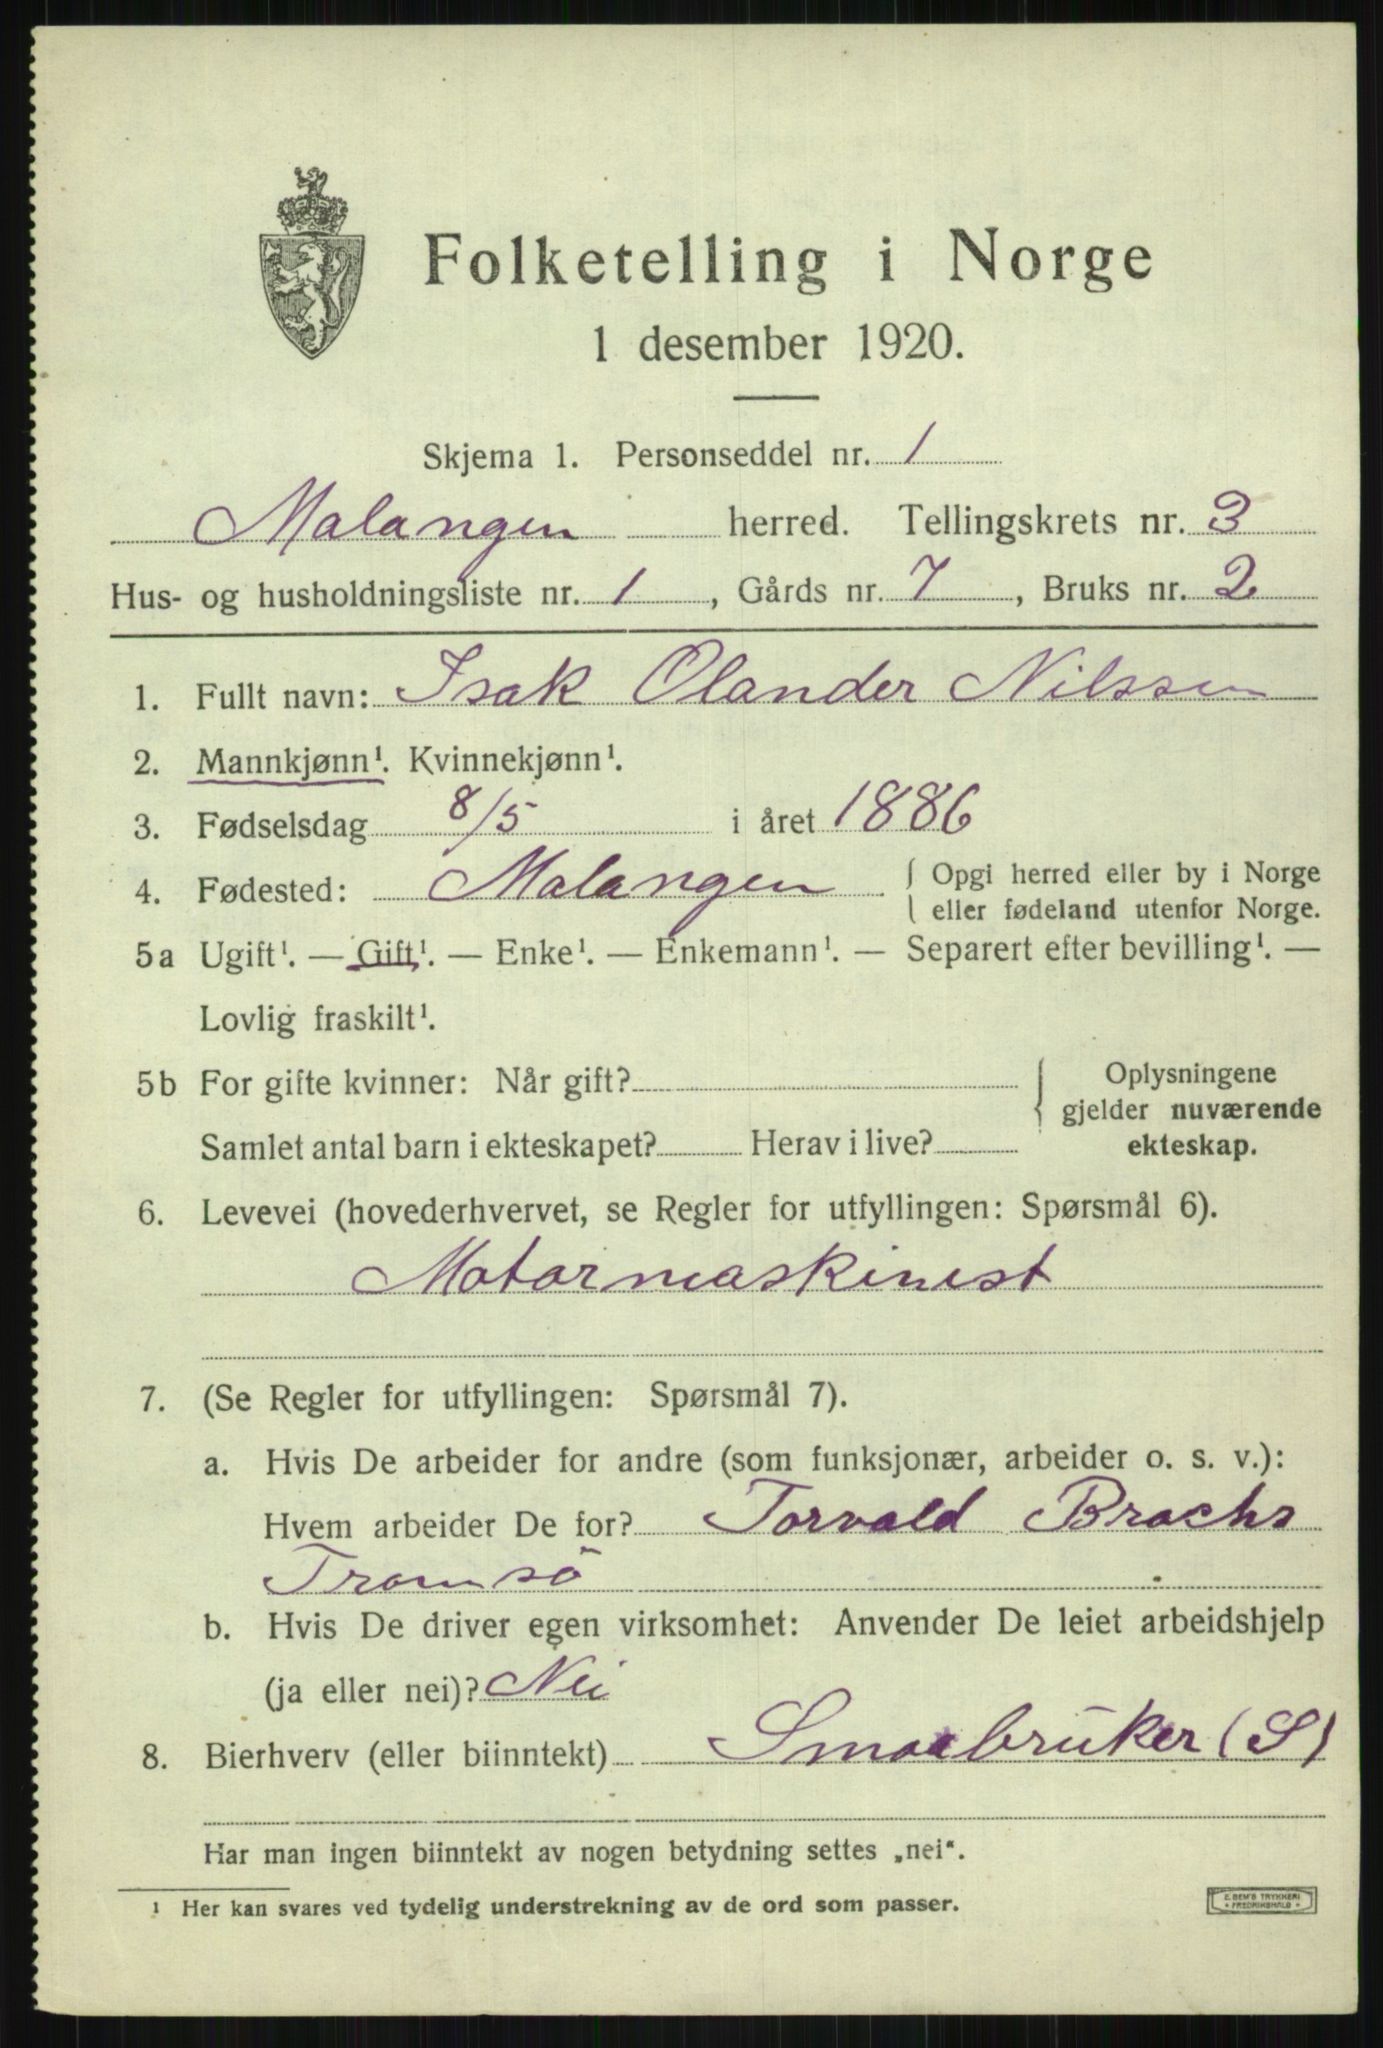 Folketelling i Norge
1 desember 1920.
Skjema 1. Personseddel nr. 1
Malangen herred. Tellingskrets nr. 3
Hus- og husholdningsliste nr. 1, Gårds nr. 7, Bruks nr. 2
1. Fullt navn: Isak Olander Nilssen
2. Mannkjønn¹. Kvinnekjønn¹.
3. Fødselsdag 8/5 i året 1886
4. Fødested: Malangen { Opgi herred eller by i Norge
eller fødeland utenfor Norge.
5a Ugift¹. — Gift¹. — Enke¹. — Enkemann¹. — Separert efter bevilling¹. —
Lovlig fraskilt¹.
5b For gifte kvinner: Når gift? { Oplysningene
gjelder nuværende
Samlet antal barn i ekteskapet? Herav i live? ekteskap.
6. Levevei (hovederhvervet, se Regler for utfyllingen: Spørsmål 6).
Motormaskinist
7. (Se Regler for utfyllingen: Spørsmål 7).
a. Hvis De arbeider for andre (som funksjonær, arbeider o. s. v.):
Hvem arbeider De for? Torvald Brochs
Tromsö
b. Hvis De driver egen virksomhet: Anvender De leiet arbeidshjelp
(ja eller nei)? Nei
8. Bierhverv (eller biinntekt) Smaabruker (S)
Har man ingen biinntekt av nogen betydning settes „nei“.
¹ Her kan svares ved tydelig understrekning av de ord som passer.
E. SEM'S TRYKKERI
FREDRIKSHALD